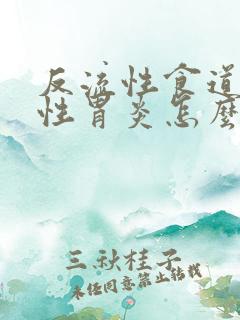 反流性食道
性胃炎怎麽
三秋桂子
未经同意禁止转载